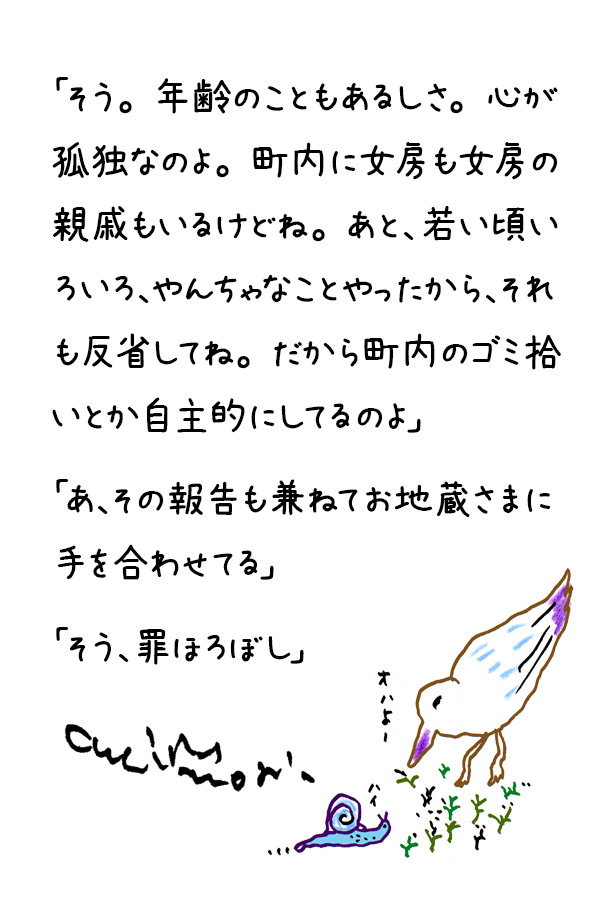 「そう。年齢のこともあるしさ。心が
孤独なのよ。町内に女房も女房の
親戚もいるけどね。あと、若い頃い
ろいろ、やんちゃなことやったから、それ
も反省してね。だから町内のゴミ拾
いとか自主的にしてるのよ」
「あ、その報告も兼ねてお地蔵さまに
手を合わせてる」
「そう、罪ほろぼし」
オハよー
ハイ